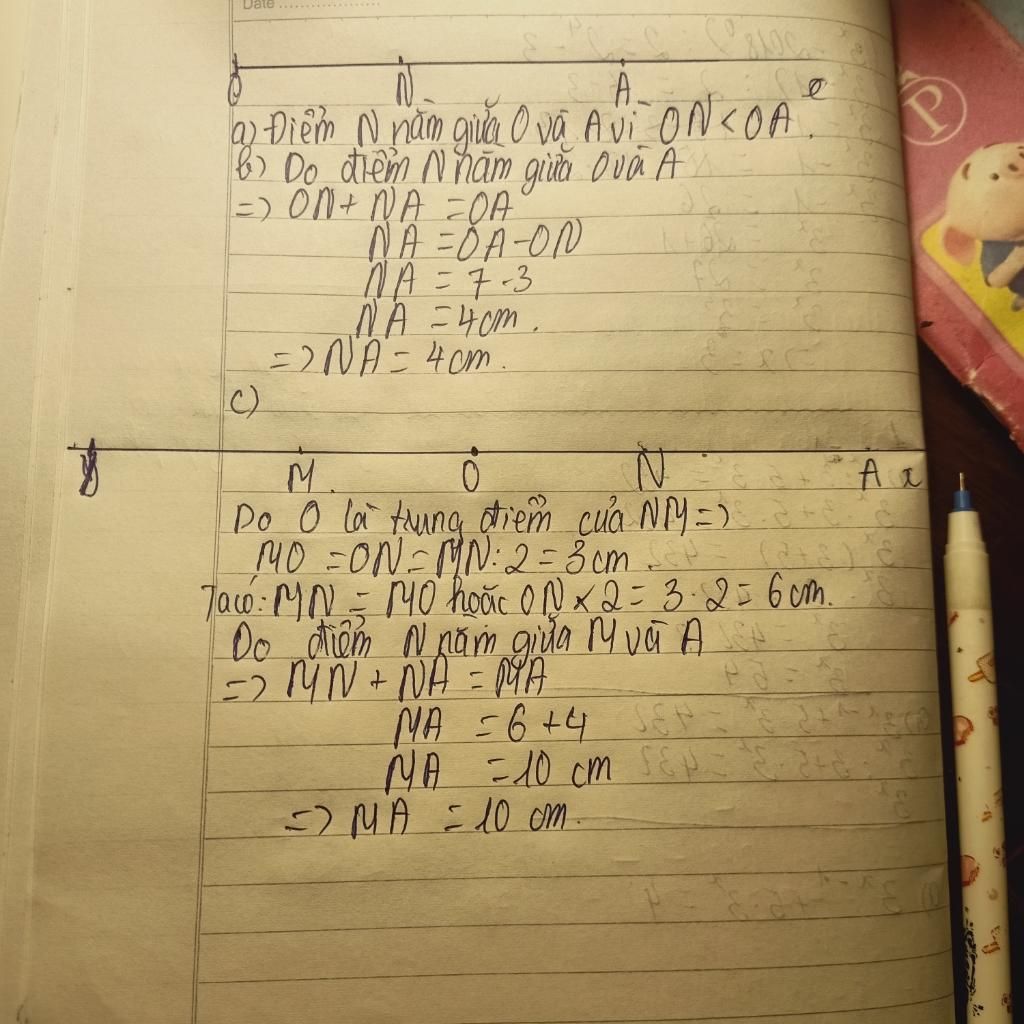 Date
O N A x
a) Điểm N nằm giữa O và A vì ON < OA.
b) Do điểm N nằm giữa O và A
=> ON + NA = OA
NA = OA - ON
NA = 7 - 3
NA = 4cm.
=> NA = 4cm.
c)
y M O N A x
Do O là trung điểm của NM =>
MO = ON = MN : 2 = 3cm.
Ta có: MN = MO hoặc ON x 2 = 3 . 2 = 6cm.
Do điểm N nằm giữa M và A
=> MN + NA = MA
MA = 6 + 4
MA = 10 cm
=> MA = 10 cm.
P